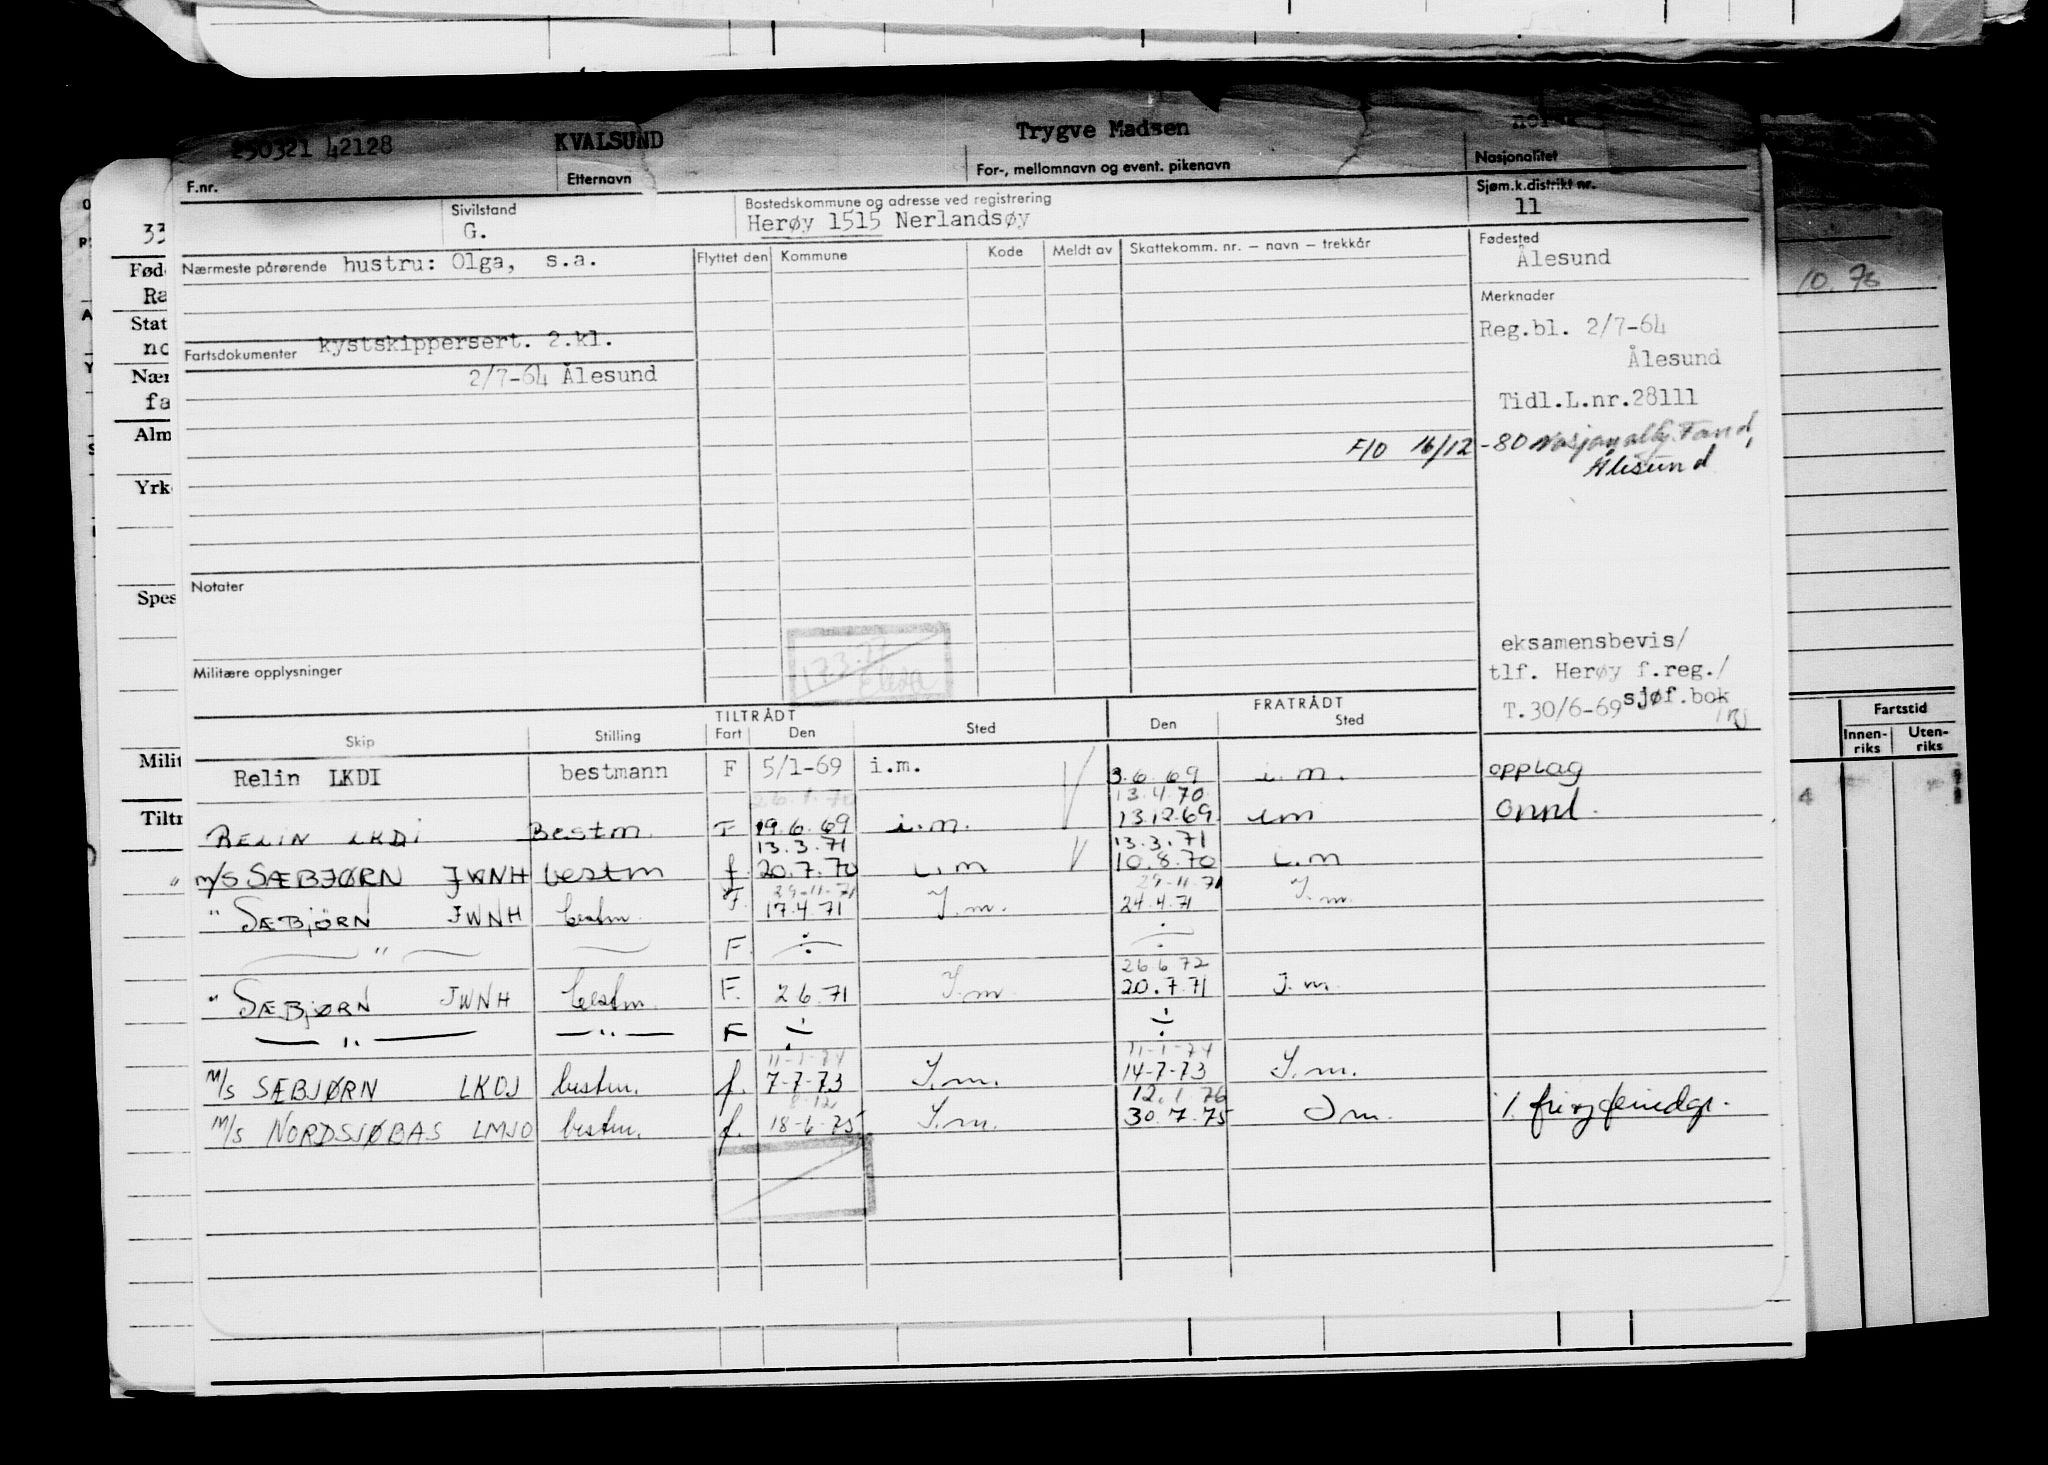 250321 42128 KVALSUND Trygve Madsen
F.nr. Etternavn For-, mellomnavn og event. pikenavn Nasjonalitet
Sivilstand Bostedskommune og adresse ved registrering Sjøm.k.distrikt nr.
G. Herøy 1515 Nerlandsøy 11
Nærmeste pårørende hustru: Olga, s.a. Flyttet den Kommune Kode Meldt av Skattekomm. nr. — navn — trekkår Fødested
Ålesund
Merknader
Fartsdokumenter kystskippersert. 2.kl. Reg.bl. 2/7-64
2/7-64 Ålesund Ålesund
Tidl.L.nr.28111
F/O 16/12-80
Ålesund
Notater
eksamensbevis/
Militære opplysninger tlf. Herøy f.reg./
T.30/6-69 sjøf.bok
TILTRÅDT FRATRÅDT
Skip Stilling Fart Den Sted Den Sted
Relin LKDI bestmann F 5/1-69 i.m. 3.6.69 i.m. opplag
26.1.70 13.4.70
RELIN LKDI Bestm. F 19.6.69 i.m. 13.12.69 im
13.3.71 13.3.71
m/s SÆBJØRN JWNH bestm f 20.7.70 i.m 10.8.70 i.m
29-11-71 29-11-71
" SÆBJØRN JWNH bestm. F. 17.4.71 I.m. 24.4.71 I.m.
" F ÷ ÷
26.6.72
" SÆBJØRN JWNH bestm. F. 2.6.71 I.m. 20.7.71 I.m.
— " — — " — F ÷ ÷
11-1-74 11-1-74
M/s SÆBJØRN LKDJ bestm. f. 7-7-73 I.m. 14-7-73 I.m.
8-12 12.1.76
M/s NORDSJØBAS LMJO bestm. f. 18-6-75 I.m. 30.7.75 Im.
33
Fød
Ra
Stat
no
Nær
fa
Alm
Yrk
Spes
Milit
Tiltr
10.76
Fartstid
Innen-riks Uten-riks
4